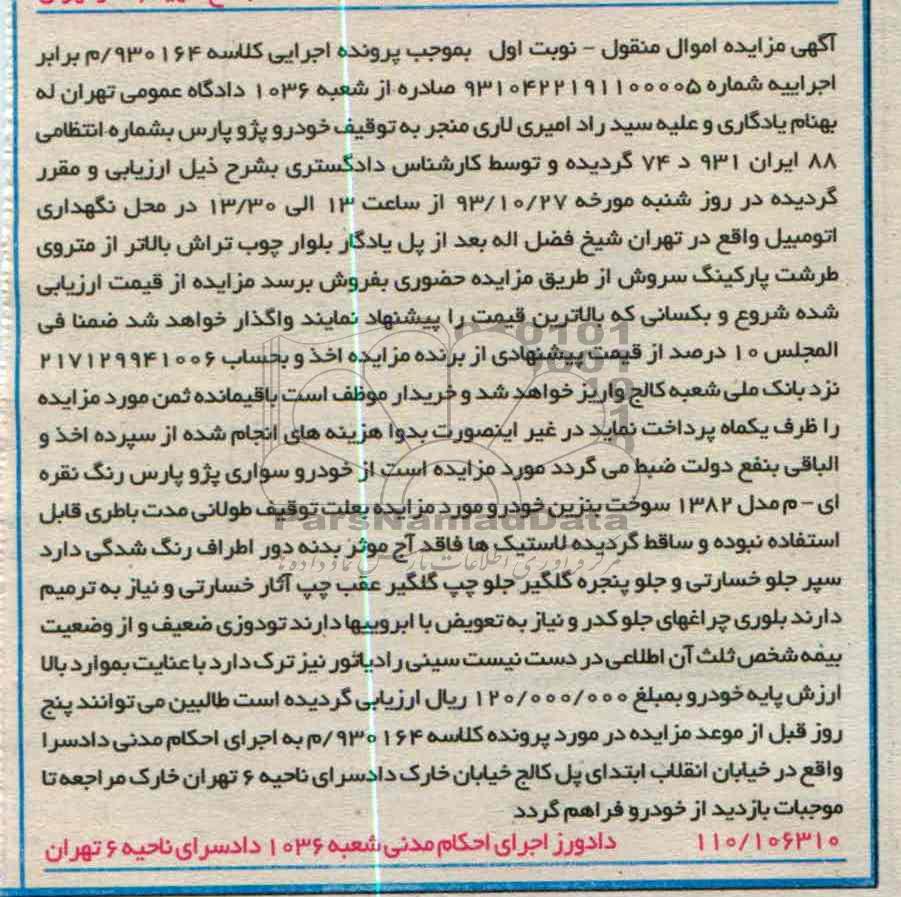 آگهی مزایده اموال منقول – نوبت اول بموجب پرونده اجرایی کلاسه ۹۳۰۱۶۴/م برابر
اجراییه شماره ۹۳۱۰۴۲۲۱۹۱۱۰۰۰۰۵ صادره از شعبه ۱۰۳۶ دادگاه عمومی تهران له
بهنام یادگاری و علیه سید راد امیری لاری منجر به توقیف خودرو پژو پارس بشماره انتظامی
۸۸ ایران ۹۳۱ د ۷۴ گردیده و توسط کارشناس دادگستری بشرح ذیل ارزیابی و مقرر
گردیده در روز شنبه مورخه ۹۳/۱۰/۲۷ از ساعت ۱۳ الی ۱۳/۳۰ در محل نگهداری
اتومبیل واقع در تهران شیخ فضل اله بعد از پل یادگار بلوار چوب تراش بالاتر از متروی
طرشت پارکینگ سروش از طریق مزایده حضوری بفروش برسد مزایده از قیمت ارزیابی
شده شروع و بکسانی که بالاترین قیمت را پیشنهاد نمایند واگذار خواهد شد ضمنا فی
المجلس ۱۰ درصد از قیمت پیشنهادی از برنده مزایده اخذ و بحساب ۲۱۷۱۲۹۹۴۱۰۰۶
نزد بانک ملی شعبه کالج واریز خواهد شد و خریدار موظف است باقیمانده ثمن مورد مزایده
را ظرف یکماه پرداخت نماید در غیر اینصورت بدوا هزینه های انجام شده از سپرده اخذ و
الباقی بنفع دولت ضبط می گردد مورد مزایده است از خودرو سواری پژو پارس رنگ نقره
ای – م مدل ۱۳۸۲ سوخت بنزین خودرو مورد مزایده بعلت توقیف طولانی مدت باطری قابل
استفاده نبوده و ساقط گردیده لاستیک ها فاقد آج موثر بدنه دور اطراف رنگ شدگی دارد
سپر جلو خسارتی و جلو پنجره گلگیر جلو چپ گلگیر عقب چپ آثار خسارتی و نیاز به ترمیم
دارند بلوری چراغهای جلو کدر و نیاز به تعویض با ابروییها دارند تودوزی ضعیف و از وضعیت
بیمه شخص ثلث آن اطلاعی در دست نیست سینی رادیاتور نیز ترک دارد با عنایت بموارد بالا
ارزش پایه خودرو بمبلغ ۱۲۰/۰۰۰/۰۰۰ ریال ارزیابی گردیده است طالبین می توانند پنج
روز قبل از موعد مزایده در مورد پرونده کلاسه ۹۳۰۱۶۴/م به اجرای احکام مدنی دادسرا
واقع در خیابان انقلاب ابتدای پل کالج خیابان خارک دادسرای ناحیه ۶ تهران خارک مراجعه تا
موجبات بازدید از خودرو فراهم گردد
۱۱۰/۱۰۶۳۱۰ دادورز اجرای احکام مدنی شعبه ۱۰۳۶ دادسرای ناحیه ۶ تهران
ParsNamadData